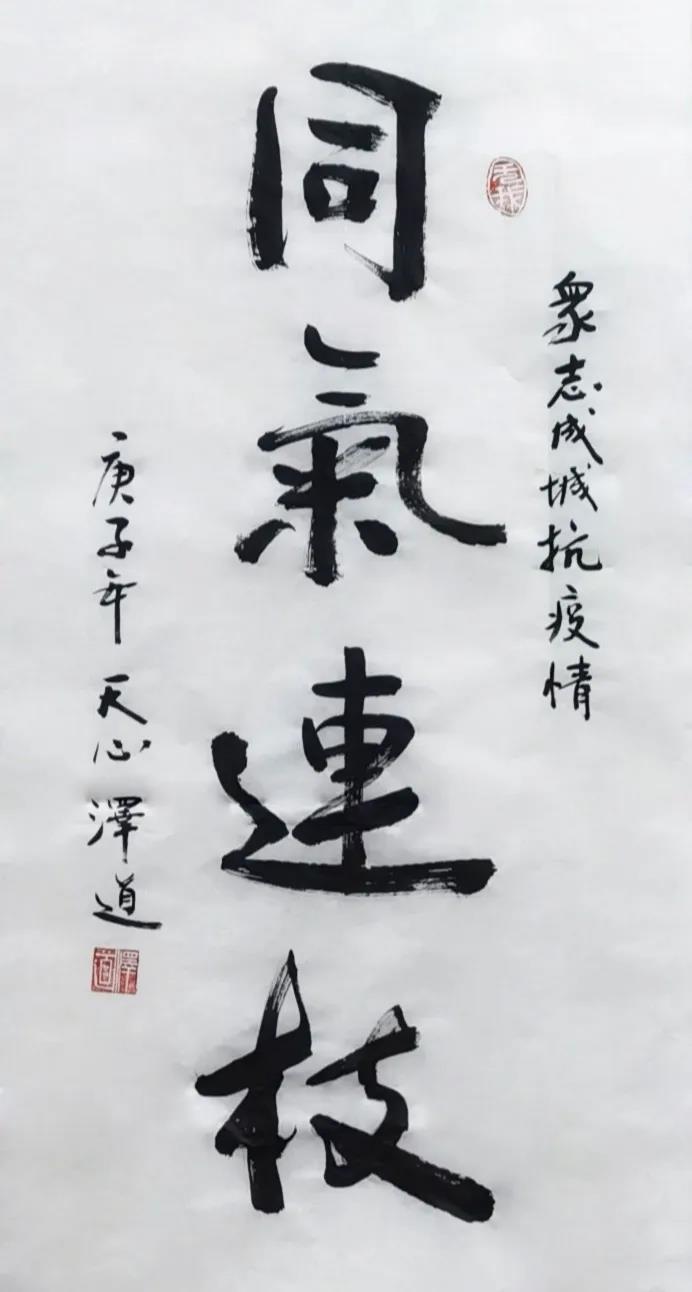 眾志成城抗疫情
同氣連枝
庚子年 天心 澤道
澤道